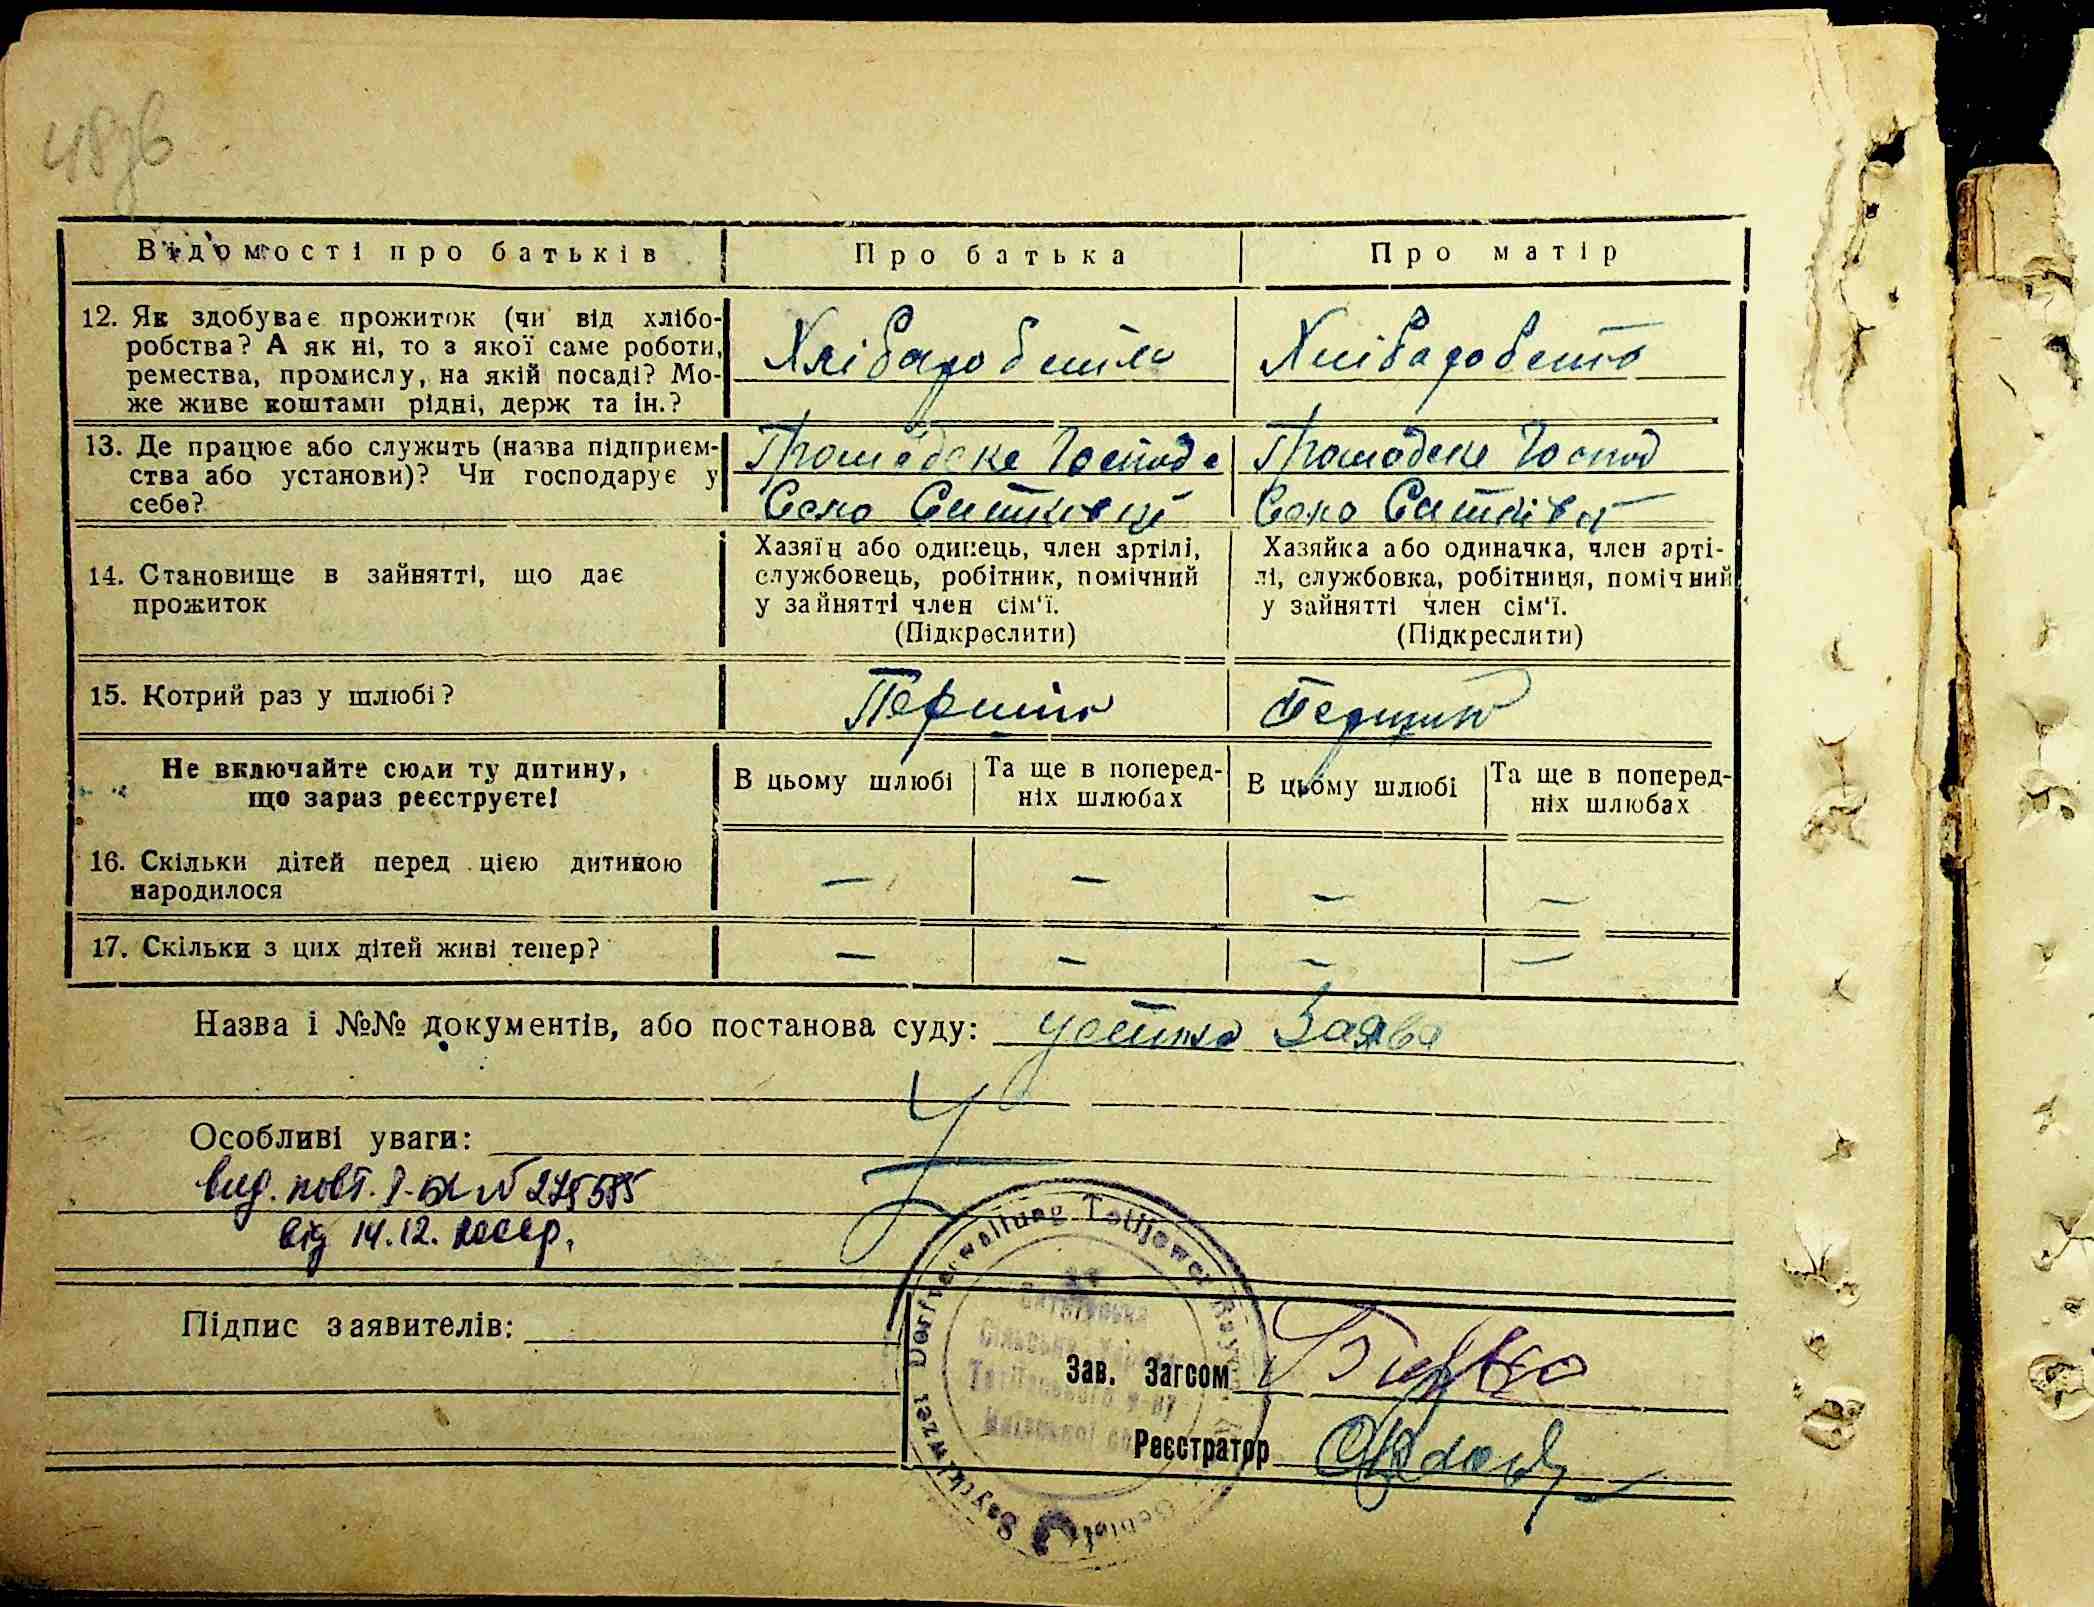 48зв
Відомості про батьків
Про батька
Про матір
12. Як здобуває прожиток (чи від хлібо-
робства? А як ні, то з якої саме роботи,
ремества, промислу, на якій посаді? Мо-
же живе коштами рідні, держ та ін.?
13. Де працює або служить (назва підприєм-
ства або установи)? Чи господарує у
себе?
Громадске Господ
Село
Громадске Господ
Село
14. Становище в зайнятті, що дає
прожиток
Хазяїн або одинець, член артілі,
службовець, робітник, помічний
у зайнятті член сім'ї.
(Підкреслити)
Хазяйка або одиначка, член арті-
лі, службовка, робітниця, помічний
у зайнятті член сім'ї.
(Підкреслити)
15. Котрий раз у шлюбі?
Не включайте сюди ту дитину,
що зараз реєструєте!
В цьому шлюбі
Та ще в поперед-
ніх шлюбах
В цьому шлюбі
Та ще в поперед-
ніх шлюбах
16. Скільки дітей перед цією дитиною
народилося
— — — —
17. Скільки з цих дітей живі тепер?
— — — —
Назва і №№ документів, або постанова суду: устна Заява
Особливі уваги:
вид. повт. І-БК № 275585
від 14.12.
Підпис заявителів:
Зав. Загсом
Реєстратор
Dorfverwaltung